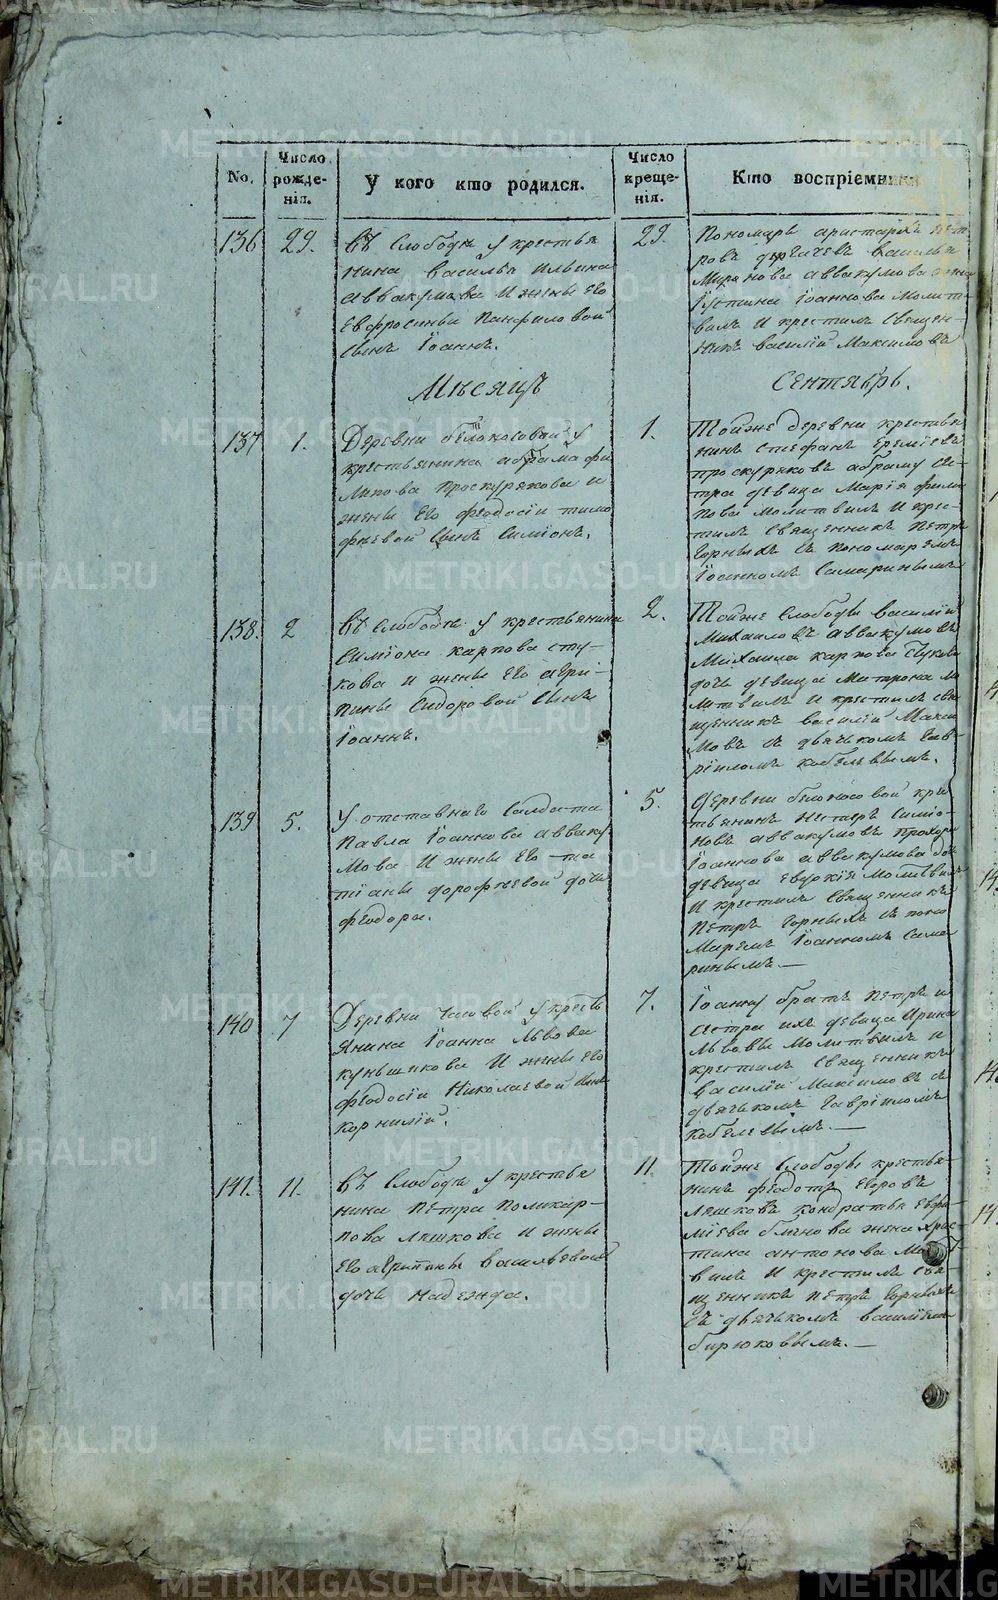 No.
Число рожде-нія.
У кого кто родился.
Число креще-нія.
Кто воспріемники
136
29.
Въ Слободѣ у крестья
нина Василья Ильина
Аввакумова и жены его
Евфросиньи Панфиловой
Сынъ Іоаннъ.
29.
Пономарь Аристархъ Пет
ровъ Василья
Миронова Аввакумова жена
Іустина Іоаннова Молит-
вилъ и крестилъ Священ-
никъ Василій Максимовъ
Мѣсяцъ
Сентябрь.
137
1.
Деревни Белоносовой у
крестьянина Абрама Фи
липова Проскурякова и
жены его Феодосіи Тимо
фѣевой Сынъ Симіонъ.
1.
Тойже деревни крестья
нинъ Стефанъ Еремѣевъ
Проскуряковъ Абраму Се-
стра девица Марія Фили
пова Молитвилъ и кре-
стилъ Священникъ Петръ
Горныхъ съ пономаремъ
Іоанномъ Самаринымъ
138.
2
Въ Слободѣ у крестьянина
Симіона Карпова Сту-
кова и жены его Агри-
пины Сидоровой Сынъ
Іоаннъ.
2.
Тойже Слободы Василій
Михаиловъ Аввакумовъ
Михаила Карпова Стукова
дочь девица Матрона Мо
литвилъ и крестилъ Свя
щенникъ Василій Макси
мовъ съ дьячькомъ Гав-
ріиломъ Кобелевымъ.
139
5.
У отставнаго Салдата
Павла Іоаннова Авваку
мова и жены его Та
тіаны Дорофѣевой дочь
Феодора.
5.
Деревни Белоносовой кре
стьянинъ Несторъ Симіо-
новъ Аввакумовъ Прохора
Іоаннова Аввакумова дочь
девица Молитвилъ
и крестилъ Священникъ
Петръ Горныхъ съ поно
маремъ Іоанномъ Сама
ринымъ.—
140
7
Деревни Часовой у кресть
янина Іоанна Львова
Куньщикова и жены его
Феодосіи Николаевой Сынъ
Корнилій.
7.
Іоанну братъ Петръ и
Сестра ихъ девица Ирина
Львовы Молитвилъ и
крестилъ Священникъ
Василій Максимовъ съ
дьячькомъ Гавріиломъ
Кобелевымъ.—
141.
11.
Въ Слободѣ у крестья
нина Петра Поликар-
пова Ляшкова и жены
его Агрипины Васильевой
дочь Надежда.
11.
Тойже Слободы крестья-
нинъ Феодотъ Егоровъ
Ляшковъ Кондратья Евфи
міева жена Хрис
тина Антонова Молит
вилъ и крестилъ Свя-
щенникъ Петръ Горныхъ
съ дьячькомъ Василіемъ
Бирюковымъ.—
METRIKI.GASO-URAL.RU